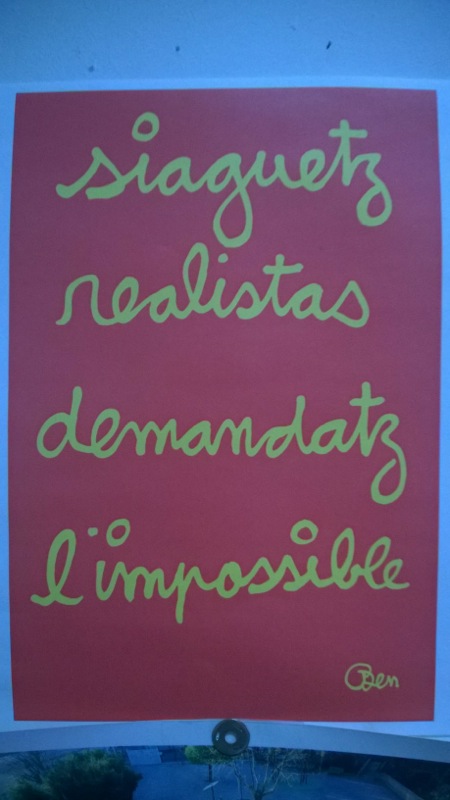 siaguetz
realistas
demandatz
l'impossible
Ben